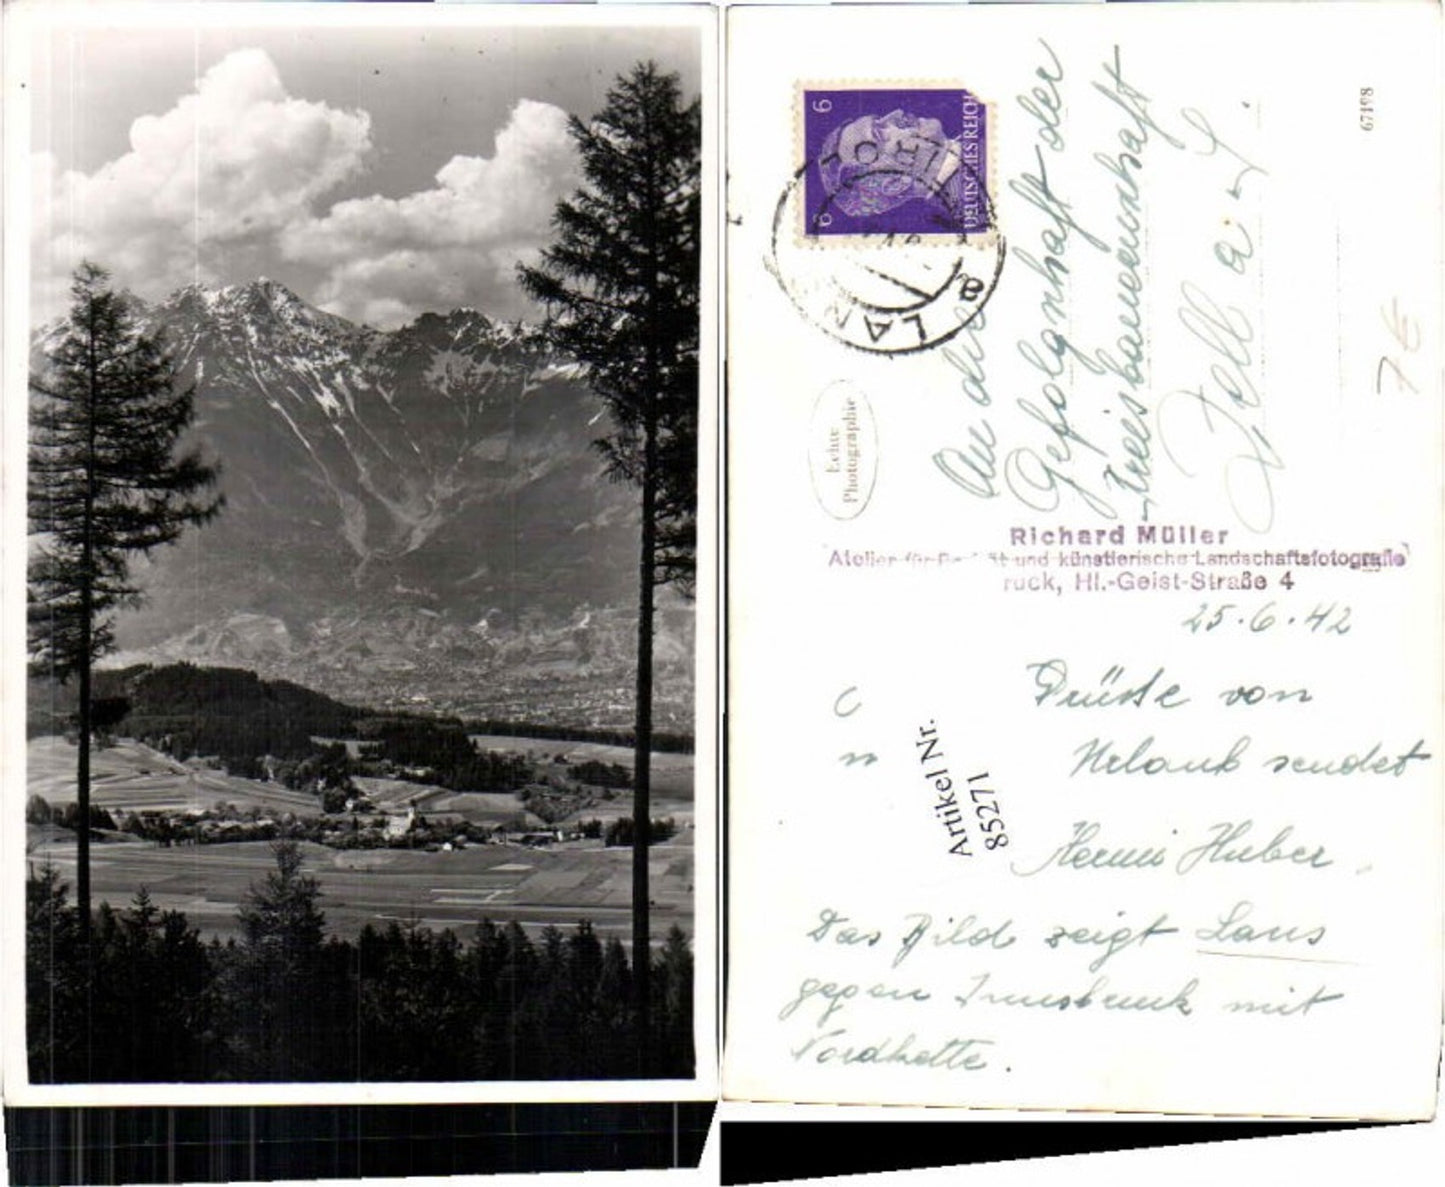 6
6
DEUTSCHES REICH
LAN
a
TIROL
An die
Gefolgschaft der
Kreisbauernschaft
Zell a. S.
67198
7 €
Echte
Photographie
Richard Müller
Atelier für und künstlerische Landschaftsfotografie
ruck, Hl.-Geist-Straße 4
25.6.42
Grüße von
Urlaub sendet
Hermi Huber.
Artikel Nr.
85271
Das Bild zeigt Lans
gegen Innsbruck mit
Nordkette.